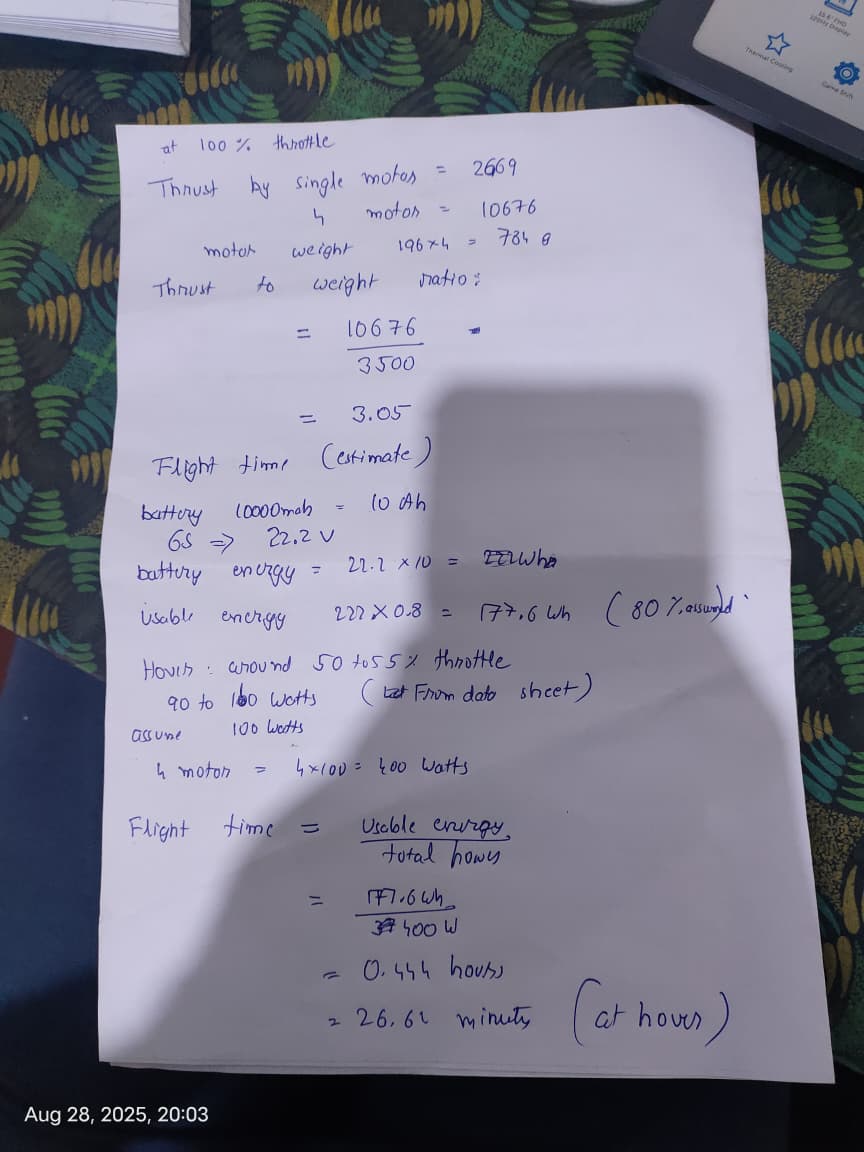 15.6" FHD
Display
Thermal Cooling
Game Shift
at 100 % throttle
Thrust by single motor = 2669
4 motor = 10676
motor weight 196×4 = 784 g
Thrust to weight ratio:
= 10676
3500
= 3.05
Flight time (estimate)
battery 10000mah = 10 Ah
6S ⇒ 22.2 V
battery energy = 22.2 × 10 = 222Wh
Usable energy 222 × 0.8 = 177.6 Wh (80 % assumed)
Hover : around 50 to 55 % throttle
90 to 100 Watts (From data sheet)
assume 100 Watts
4 motor = 4×100 = 400 Watts
Flight time = Usable energy
total
= 177.6 Wh
400 W
= 0.444 hours
= 26.64 minuty (at hover)
Aug 28, 2025, 20:03